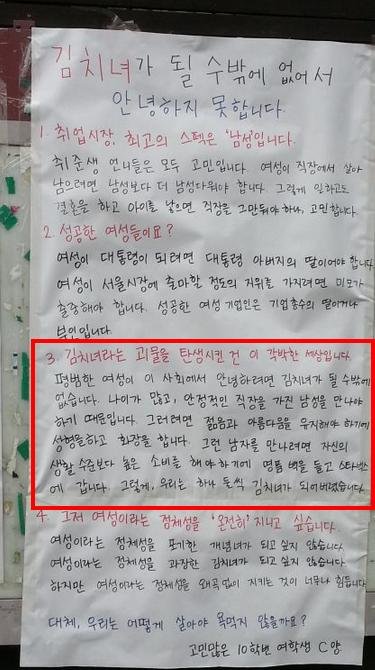 김치녀가 될 수밖에 없어서
안녕하지 못합니다.
1. 취업시장, 최고의 스펙은 '남성'입니다.
취준생 언니들은 모두 고민입니다. 여성이 직장에서 살아
남으려면 남성보다 더 남성다워야 합니다. 그렇게 일하고도
결혼을 하고 아이를 낳으면 직장을 그만둬야 하나, 고민합니다.
2. 성공한 여성들이요?
여성이 대통령이 되려면 대통령 아버지의 딸이어야 합니다
여성이 서울시장에 출마할 정도의 지위를 가지려면 미모가
출중해야 합니다. 성공한 여성 기업인은 기업총수의 딸이거나
부인입니다.
3. 김치녀라는 괴물을 탄생시킨 건 이 각박한 세상입니다.
평범한 여성이 이 사회에서 안녕하려면 김치녀가 될 수밖에
없습니다. 나이가 많고, 안정적인 직장을 가진 남성을 만나야
하기 때문입니다. 그러려면 젊음과 아름다움을 유지해야 하기에
성형을하고 화장을 합니다. 그런 남자를 만나려면 자신의
생활 수준보다 높은 소비를 해야하기에 명품 백을 들고 스타벅스
에 갑니다. 그렇게, 우리는 하나 둘씩 김치녀가 되어버렸습니다.
4. 그저 여성이라는 정체성을 '온전히' 지니고 싶습니다.
여성이라는 정체성을 포기한 개념녀가 되고 싶지 않습니다.
여성이라는 정체성을 과장한 김치녀가 되고싶지 않습니다.
하지만 여성이라는 정체성을 왜곡 없이 지키는 것이 너무나 힘듭니다.
대체, 우리는 어떻게 살아야 욕먹지 않을까요?
고민많은 10학번 여학생 C양